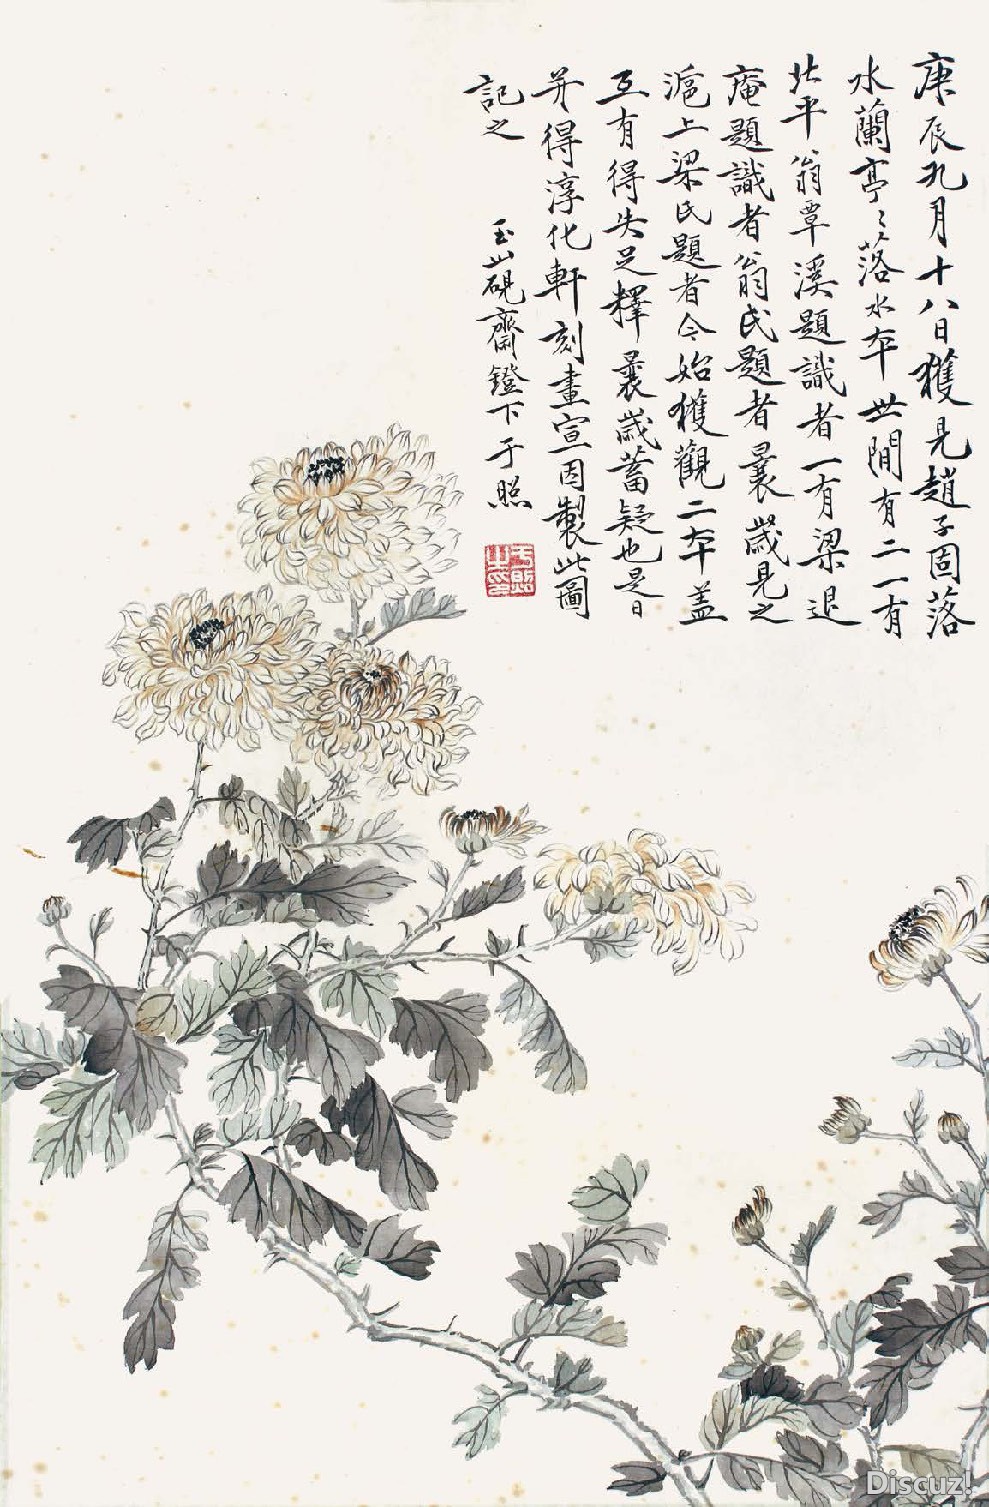 庚辰九月十八日獲見趙子固落
水蘭亭〻落水本世間有二一有
北平翁覃溪題識者一有梁退
庵題識者翁氏題者曩歲見之
滬上梁氏題者今始獲觀二本蓋
互有得失足釋曩歲蓄疑也是日
并得淳化軒刻畫宣因製此圖
記之 玉山硯齋鐙下于照
于照之印
Discuz!